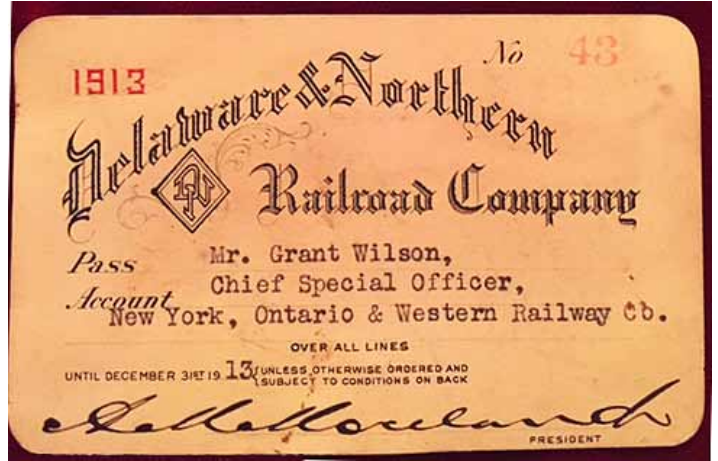 1913 No 43
Delaware & Northern
DN Railroad Company
Pass Mr. Grant Wilson,
Account Chief Special Officer,
New York, Ontario & Western Railway Co.
OVER ALL LINES
UNTIL DECEMBER 31ST 19 13 {UNLESS OTHERWISE ORDERED AND
SUBJECT TO CONDITIONS ON BACK
Moreland
PRESIDENT